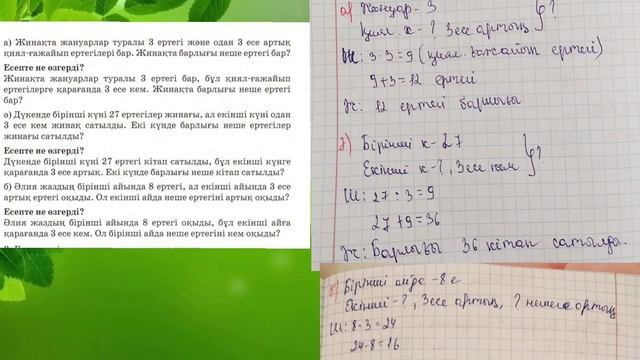 а) Жинақта жануарлар туралы 3 ертегі және одан 3 есе артық
қиял-ғажайып ертегілері бар. Жинақта барлығы неше ертегі бар?
Есепте не өзгерді?
Жинақта жануарлар туралы 3 ертегі бар, бұл қиял-ғажайып
ертегілерге қарағанда 3 есе кем. Жинақта барлығы неше ертегі
бар?
ә) Дүкенде бірінші күні 27 ертегілер жинағы, ал екінші күні одан
3 есе кем жинақ сатылды. Екі күнде барлығы неше ертегілер
жинағы сатылды?
Есепте не өзгерді?
Дүкенде бірінші күні 27 ертегі кітап сатылды, бұл екінші күнге
қарағанда 3 есе артық. Екі күнде барлығы неше кітап сатылды?
б) Әлия жаздың бірінші айында 8 ертегі, ал екінші айында 3 есе
артық ертегі оқыды. Ол екінші айда неше ертегіні артық оқыды?
Есепте не өзгерді?
Әлия жаздың бірінші айында 8 ертегі оқыды, бұл екінші айға
қарағанда 3 есе кем. Ол бірінші айда неше ертегіні кем оқыды?
а) Жануар - 3
Қиял. к - ? 3 есе артық ?
Ш: 3·3=9 (қиял. ғажайып ертегі)
9+3=12 ертегі
Ж: 12 ертегі барлығы
Бірінші к - 27
Екінші к - ?, 3 есе кем ?
Ш: 27:3=9
27+9=36
Ж: Барлығы 36 кітап сатылды.
б) Бірінші айда - 8 е
Екінші - ?, 3 есе артық, ? нешеге артық
Ш: 8·3=24
24-8=16